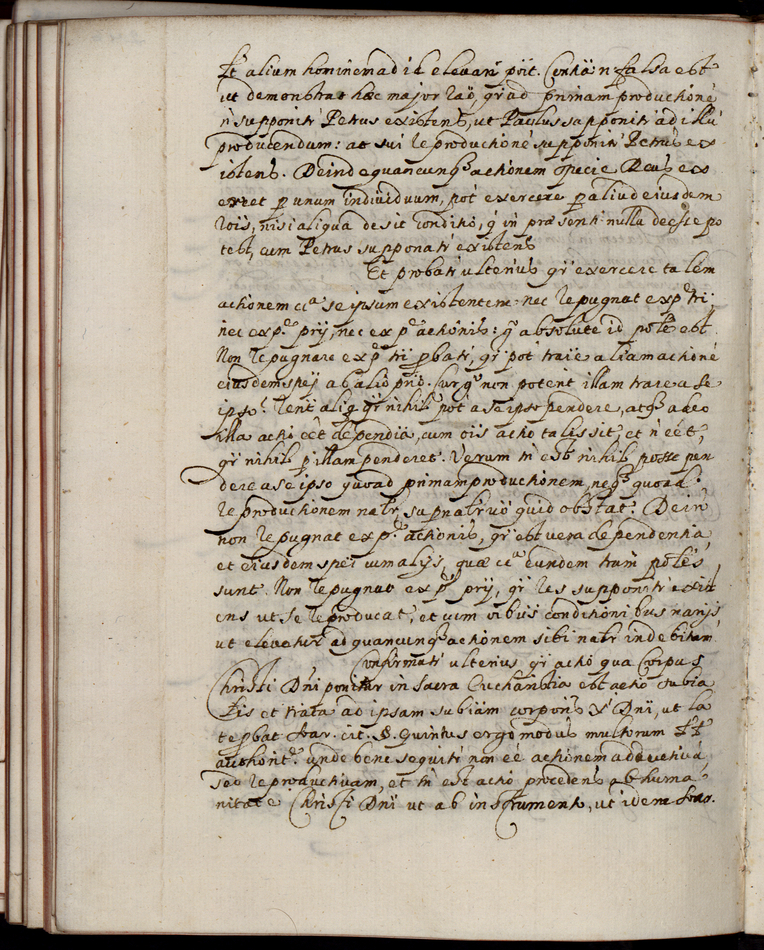 alium hominem ad id elevari põit. Conña n̄ falsa est
ut demonstrat hæc major raõ, qr̄ ad primam productionē
n̄ supponitr̄ Petrus existens, ut Paulus supponitr̄ ad illũ
producendum: at sui reproductionē supponitr̄ Petrus ex
istens. Deinde quancunq̨ actionem specie Deus ex
ercet p unum individuum, pot̄ exercere p aliud eiusdem
rõis, nisi aliqua desit conditio, q̄ in præsenti nulla deesse po
test, cum Petrus supponatr̄ existens
Et probatr̄ ulterius qr̄ exercere talem
actionem c̄ca se ipsum existentem nec repugnat ex p.te tri
nec ex p.te prij, nec ex p.te actionis: q̄ absolute id pole est.
Non repugnare ex p.te tri pbatr̄, qr̄ pot̄ traij̄e aliam actionē
eiusdem spēi ab alio prio. Cur q̄ non poterit illam trare a se
ipso? aliq qr̄ nihil pot̄ a se ipso pendere, atq̨ adeo
illa actio eēt dependīa, cum oīs actio talis sit, et n̄ eēt,
qr̄ nihil p illam penderet. Verum tn̄ est nihil posse pen
dere a se ipso quoad primam productionem, neq̨ quoad
reproductionem natr, supnatr vō quid obstat? Dein
non repugnat ex p.te actionis, qr̄ est vera dependentia,
et eiusdem spēi cum alijs, quæ c̄ca eundem trum poles
sunt. Non repugnat ex p.te prij, qr̄ res supponitr̄ exist
ens ut se reproducat, et cum oībus conditionibus narijs
ut elevetur ad quancunq̨ actionem sibi natr indebitam.
Confirmatr̄ ulterius qr̄ actio qua Corpus
Christi Dñi ponitur in Sacra Eucharistia est actio subia
lis et trata ad ipsam subiam corporis Xi Dñi, ut la
te pbat Suar. cit. §. Quintus ergo modus multorum
authorit.e unde bene sequitr̄ non eē actionem adductivã,
sed reproductivam, et tn̄ est actio procedens ab huma
nitate Christi Dñi ut ab instrumento, ut idem Suar.